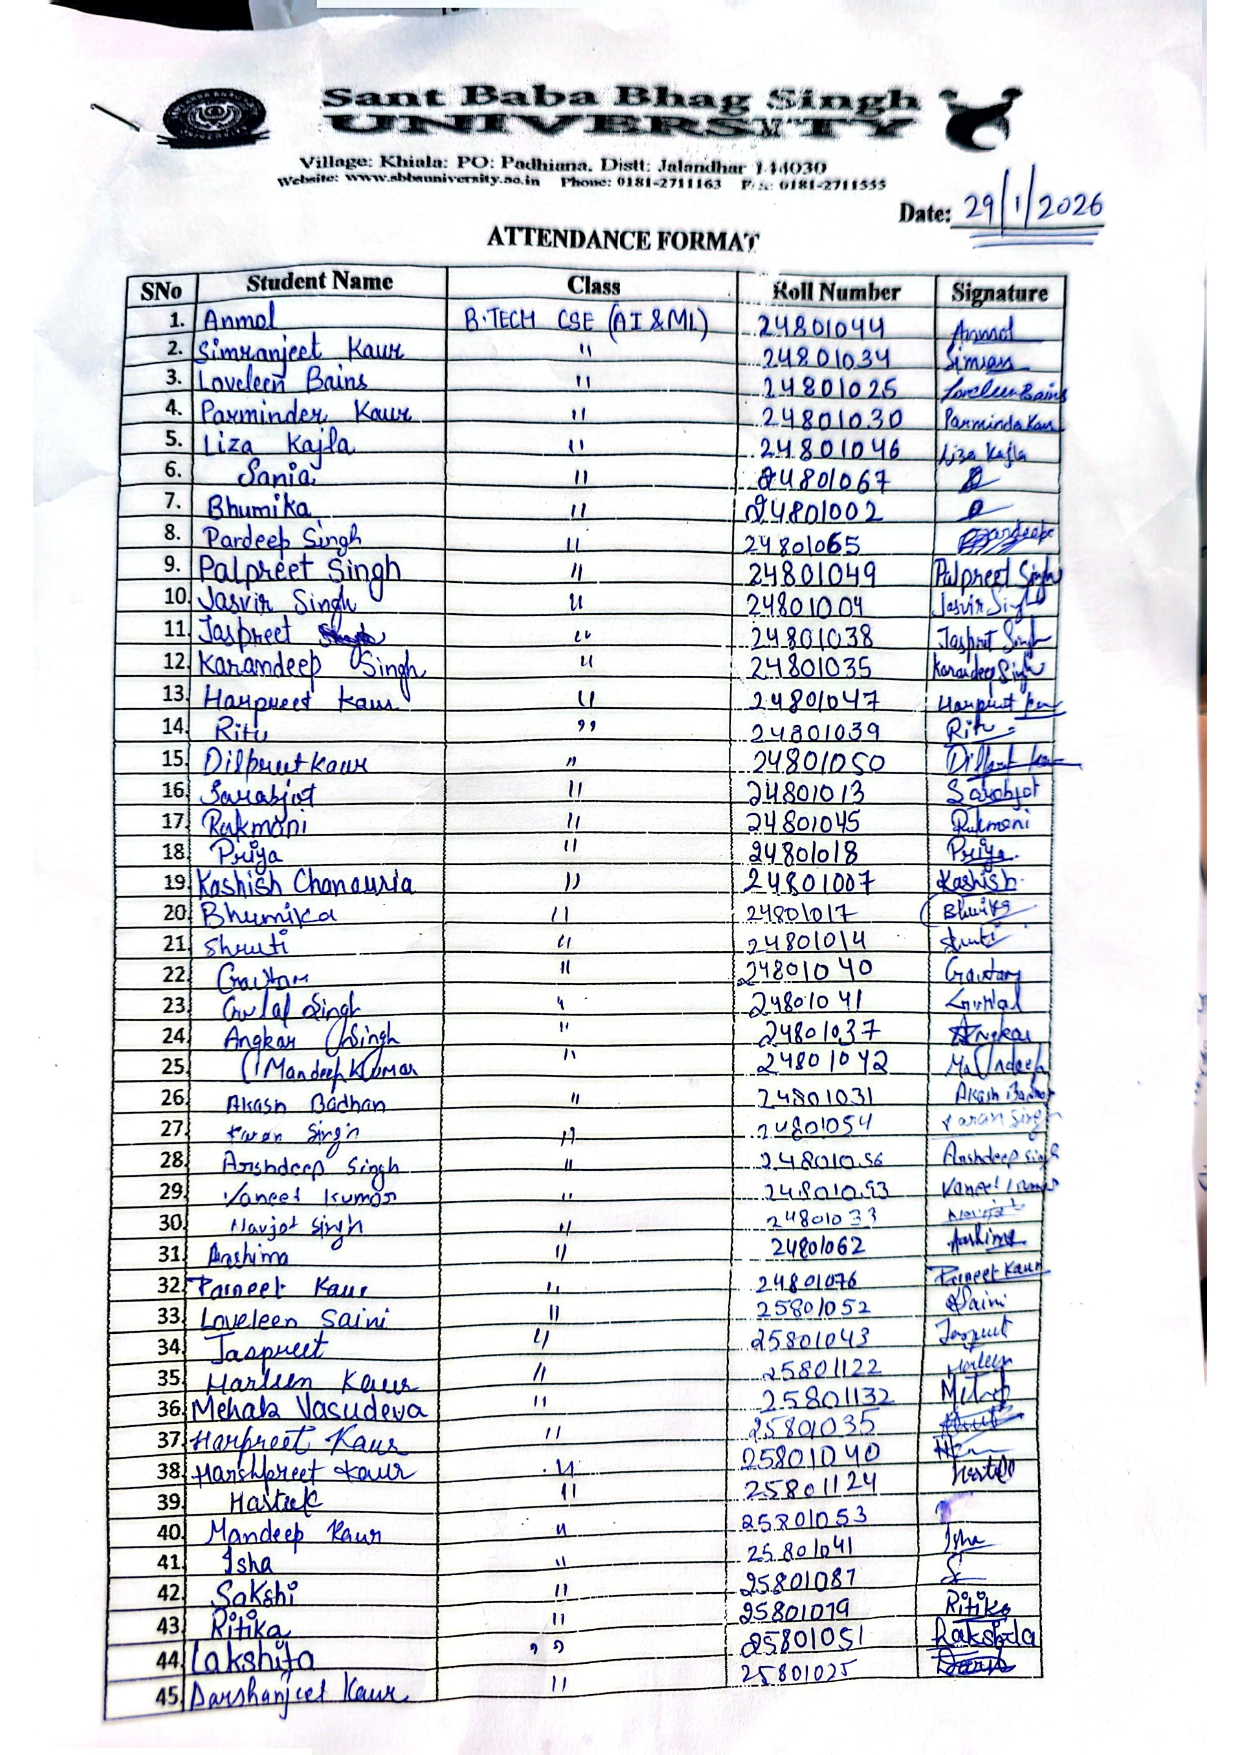 Sant Baba Bhag Singh
UNIVERSITY
Village: Khiala: PO: Padhiana, Distt: Jalandhar 144030
Website: www.sbbsuniversity.ac.in Phone: 0181-2711163 Fax: 0181-2711555
Date: 29/1/2026
ATTENDANCE FORMAT
SNo Student Name Class Roll Number Signature
1. Anmol B.TECH CSE (AI & ML) 24801044 Anmol
2. Simranjeet Kaur " 24801034 Simran
3. Loveleen Bains " 24801025 Loveleen Bains
4. Parminder Kaur " 24801030 Parminder Kaur
5. Liza Kajla " 24801046 Liza Kajla
6. Sania " 24801067
7. Bhumika " 24801002
8. Pardeep Singh " 24801065 Pardeep
9. Palpreet Singh " 24801049 Palpreet Singh
10. Jasvir Singh " 24801004 Jasvir Singh
11. Jaspreet " 24801038 Jasprit Singh
12. Karamdeep Singh " 24801035 Karandeep Singh
13. Harpreet Kaur " 24801047 Harpreet Kaur
14. Ritu " 24801039 Ritu
15. Dilpreet Kaur " 24801050 Dilpreet Kaur
16. Sarabjot " 24801013 Sarabjot
17. Rukmani " 24801045 Rukmani
18. Priya " 24801018 Priya
19. Kashish Chanauria " 24801007 Kashish
20. Bhumika " 24801017 Bhumika
21. Shruti " 24801014 Shruti
22. Gautam " 24801040 Gautam
23. Gulal Singh " 24801041
24. Angkar Singh " 24801037 Angkar
25. Mandeep Kumar " 24801042 Mandeep
26. Akash Badhan " 24801031 Akash Badhan
27. Karan Singh " 24801054 Karan Singh
28. Arshdeep Singh " 24801056 Arshdeep Singh
29. Vaneet Kumar " 24801053 Vaneet Kumar
30. Navjot Singh " 24801033 Navjot
31. Aashima " 24801062 Aashima
32. Parneet Kaur " 24801076 Parneet Kaur
33. Loveleen Saini " 25801052 Saini
34. Jaspreet " 25801043 Jaspreet
35. Harleen Kaur " 25801122 Harleen
36. Mehak Vasudeva " 25801132 Mehak
37. Harpreet Kaur " 25801035
38. Harshpreet Kaur " 25801040
39. Hartek " 25801124
40. Mandeep Kaur " 25801053
41. Isha " 25801041 Isha
42. Sakshi " 25801087
43. Ritika " 25801079 Ritika
44. Lakshita " 25801051 Lakshita
45. Darshanjeet Kaur " 25801025